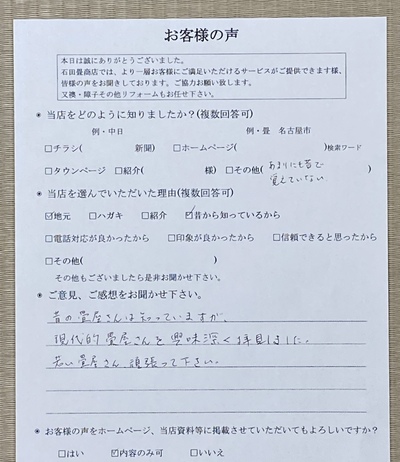 お客様の声
本日は誠にありがとうございました。
石田畳商店では、より一層お客様にご満足いただけるサービスがご提供できます様、
皆様の声をお聞きしております。ご協力お願い致します。
又襖・障子その他リフォームもお任せ下さい。
* 当店をどのように知りましたか?(複数回答可)
例・中日 例・畳 名古屋市
□チラシ( 新聞) □ホームページ( )検索ワード
□タウンページ □紹介( 様) □その他(あまりにも昔で覚えていない)
* 当店を選んでいただいた理由(複数回答可)
☑地元 □ハガキ □紹介 ☑昔から知っているから
□電話対応が良かったから □印象が良かったから □信頼できると思ったから
□その他( )
その他もございましたら是非お聞かせ下さい。
* ご意見、ご感想をお聞かせ下さい。
昔の畳屋さんは知っていますが、
現代的畳屋さんを興味深く拝見しました。
若い畳屋さん、頑張って下さい。
* お客様の声をホームページ、当店資料等に掲載させていただいてもよろしいですか?
□はい ☑内容のみ可 □いいえ